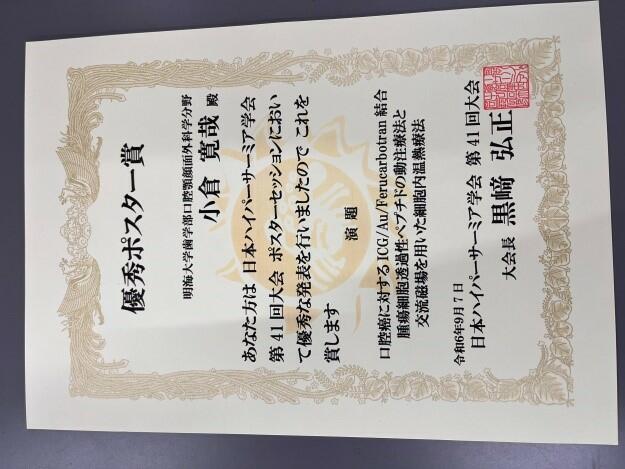 優秀ポスター賞
明海大学歯学部口腔顎顔面外科学分野
小倉 寛哉 殿
あなた方は 日本ハイパーサーミア学会
第41回大会 ポスターセッションにおい
て優秀な発表を行いましたので これを
賞します
演題
口腔癌に対するICG/Au/Ferucarbotran 結合
腫瘍細胞透過性ペプチドの動注療法と
交流磁場を用いた細胞内温熱療法
令和6年9月7日
日本ハイパーサーミア学会 第41回大会
大会長 黒﨑 弘正